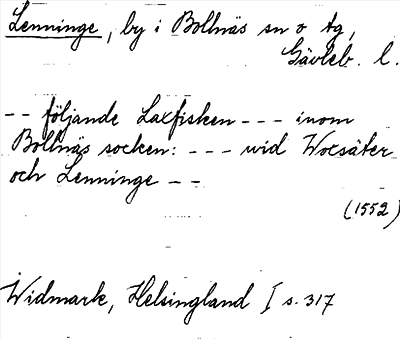 Lenninge, by i Bollnäs sn o tg,
Gävleb. l.
-- följande Laxfisken --- inom
Bollnäs socken: --- wid Wocsäter
och Lenninge --
(1552)
Widmark, Helsingland I s. 317